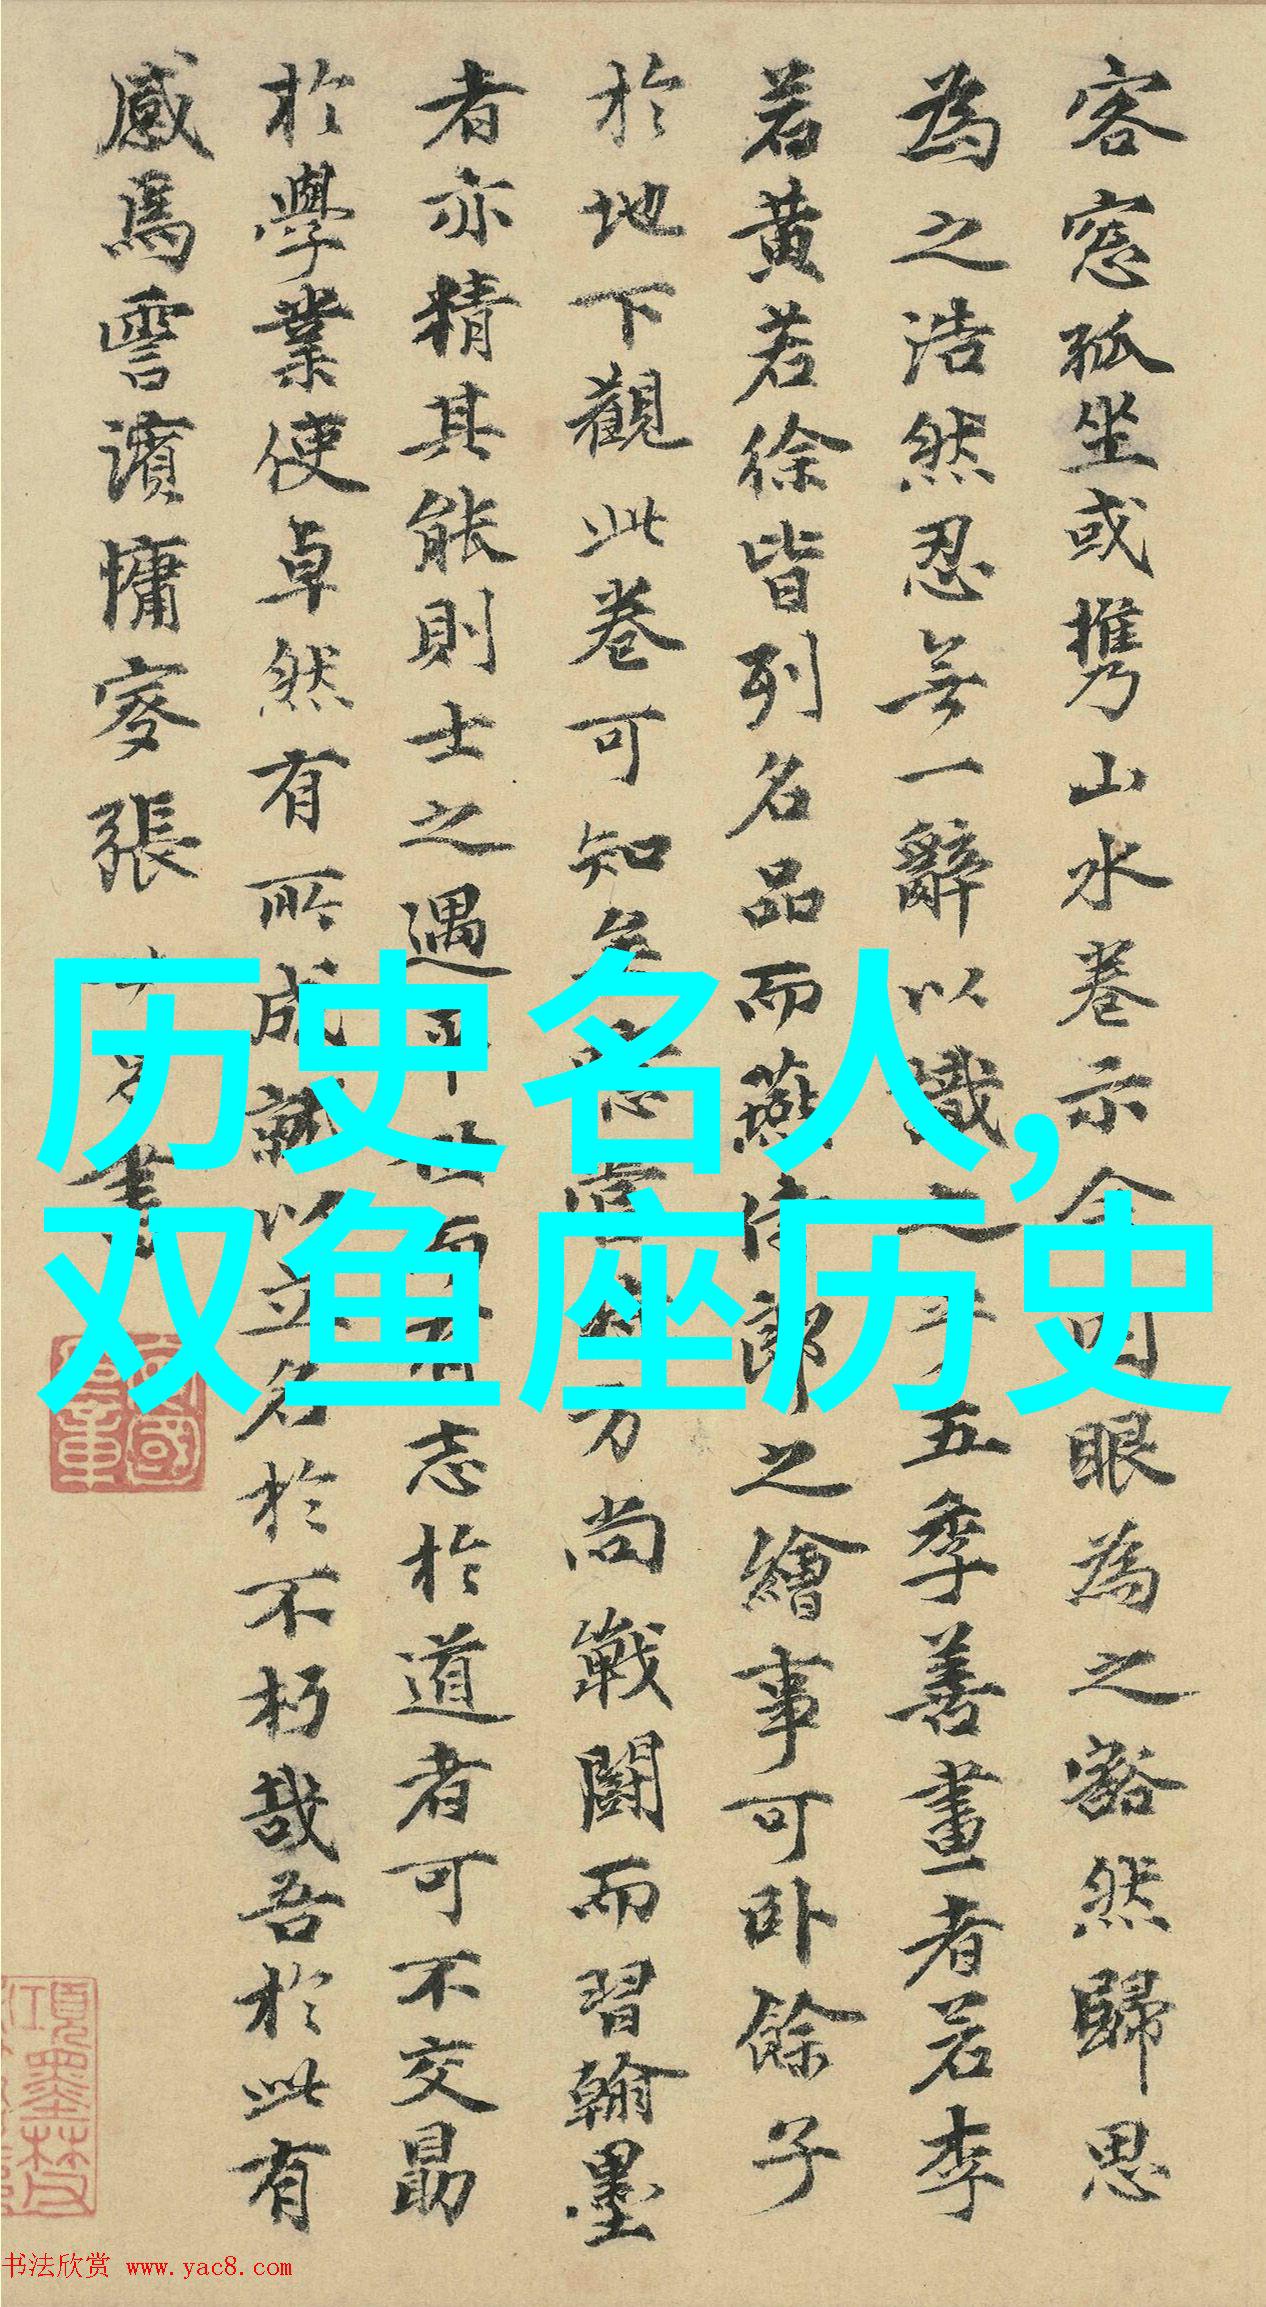 客窓孤坐或携山水卷示余
眼為之豁然歸思
為之浩然忍無一辭以識之
五季善畫者若李
若黄若徐皆列名品而燕侍郎之繪事可卧餘子
於地下觀此卷可知矣
方尚戰鬪而習翰墨
者亦精其能則士之遇
志於道者可不交勗
於學業使卓然有所成就以立名於不朽哉吾於此有
感焉
張
書
历史名人,
双鱼座历史
书法欣赏 www.yac8.com